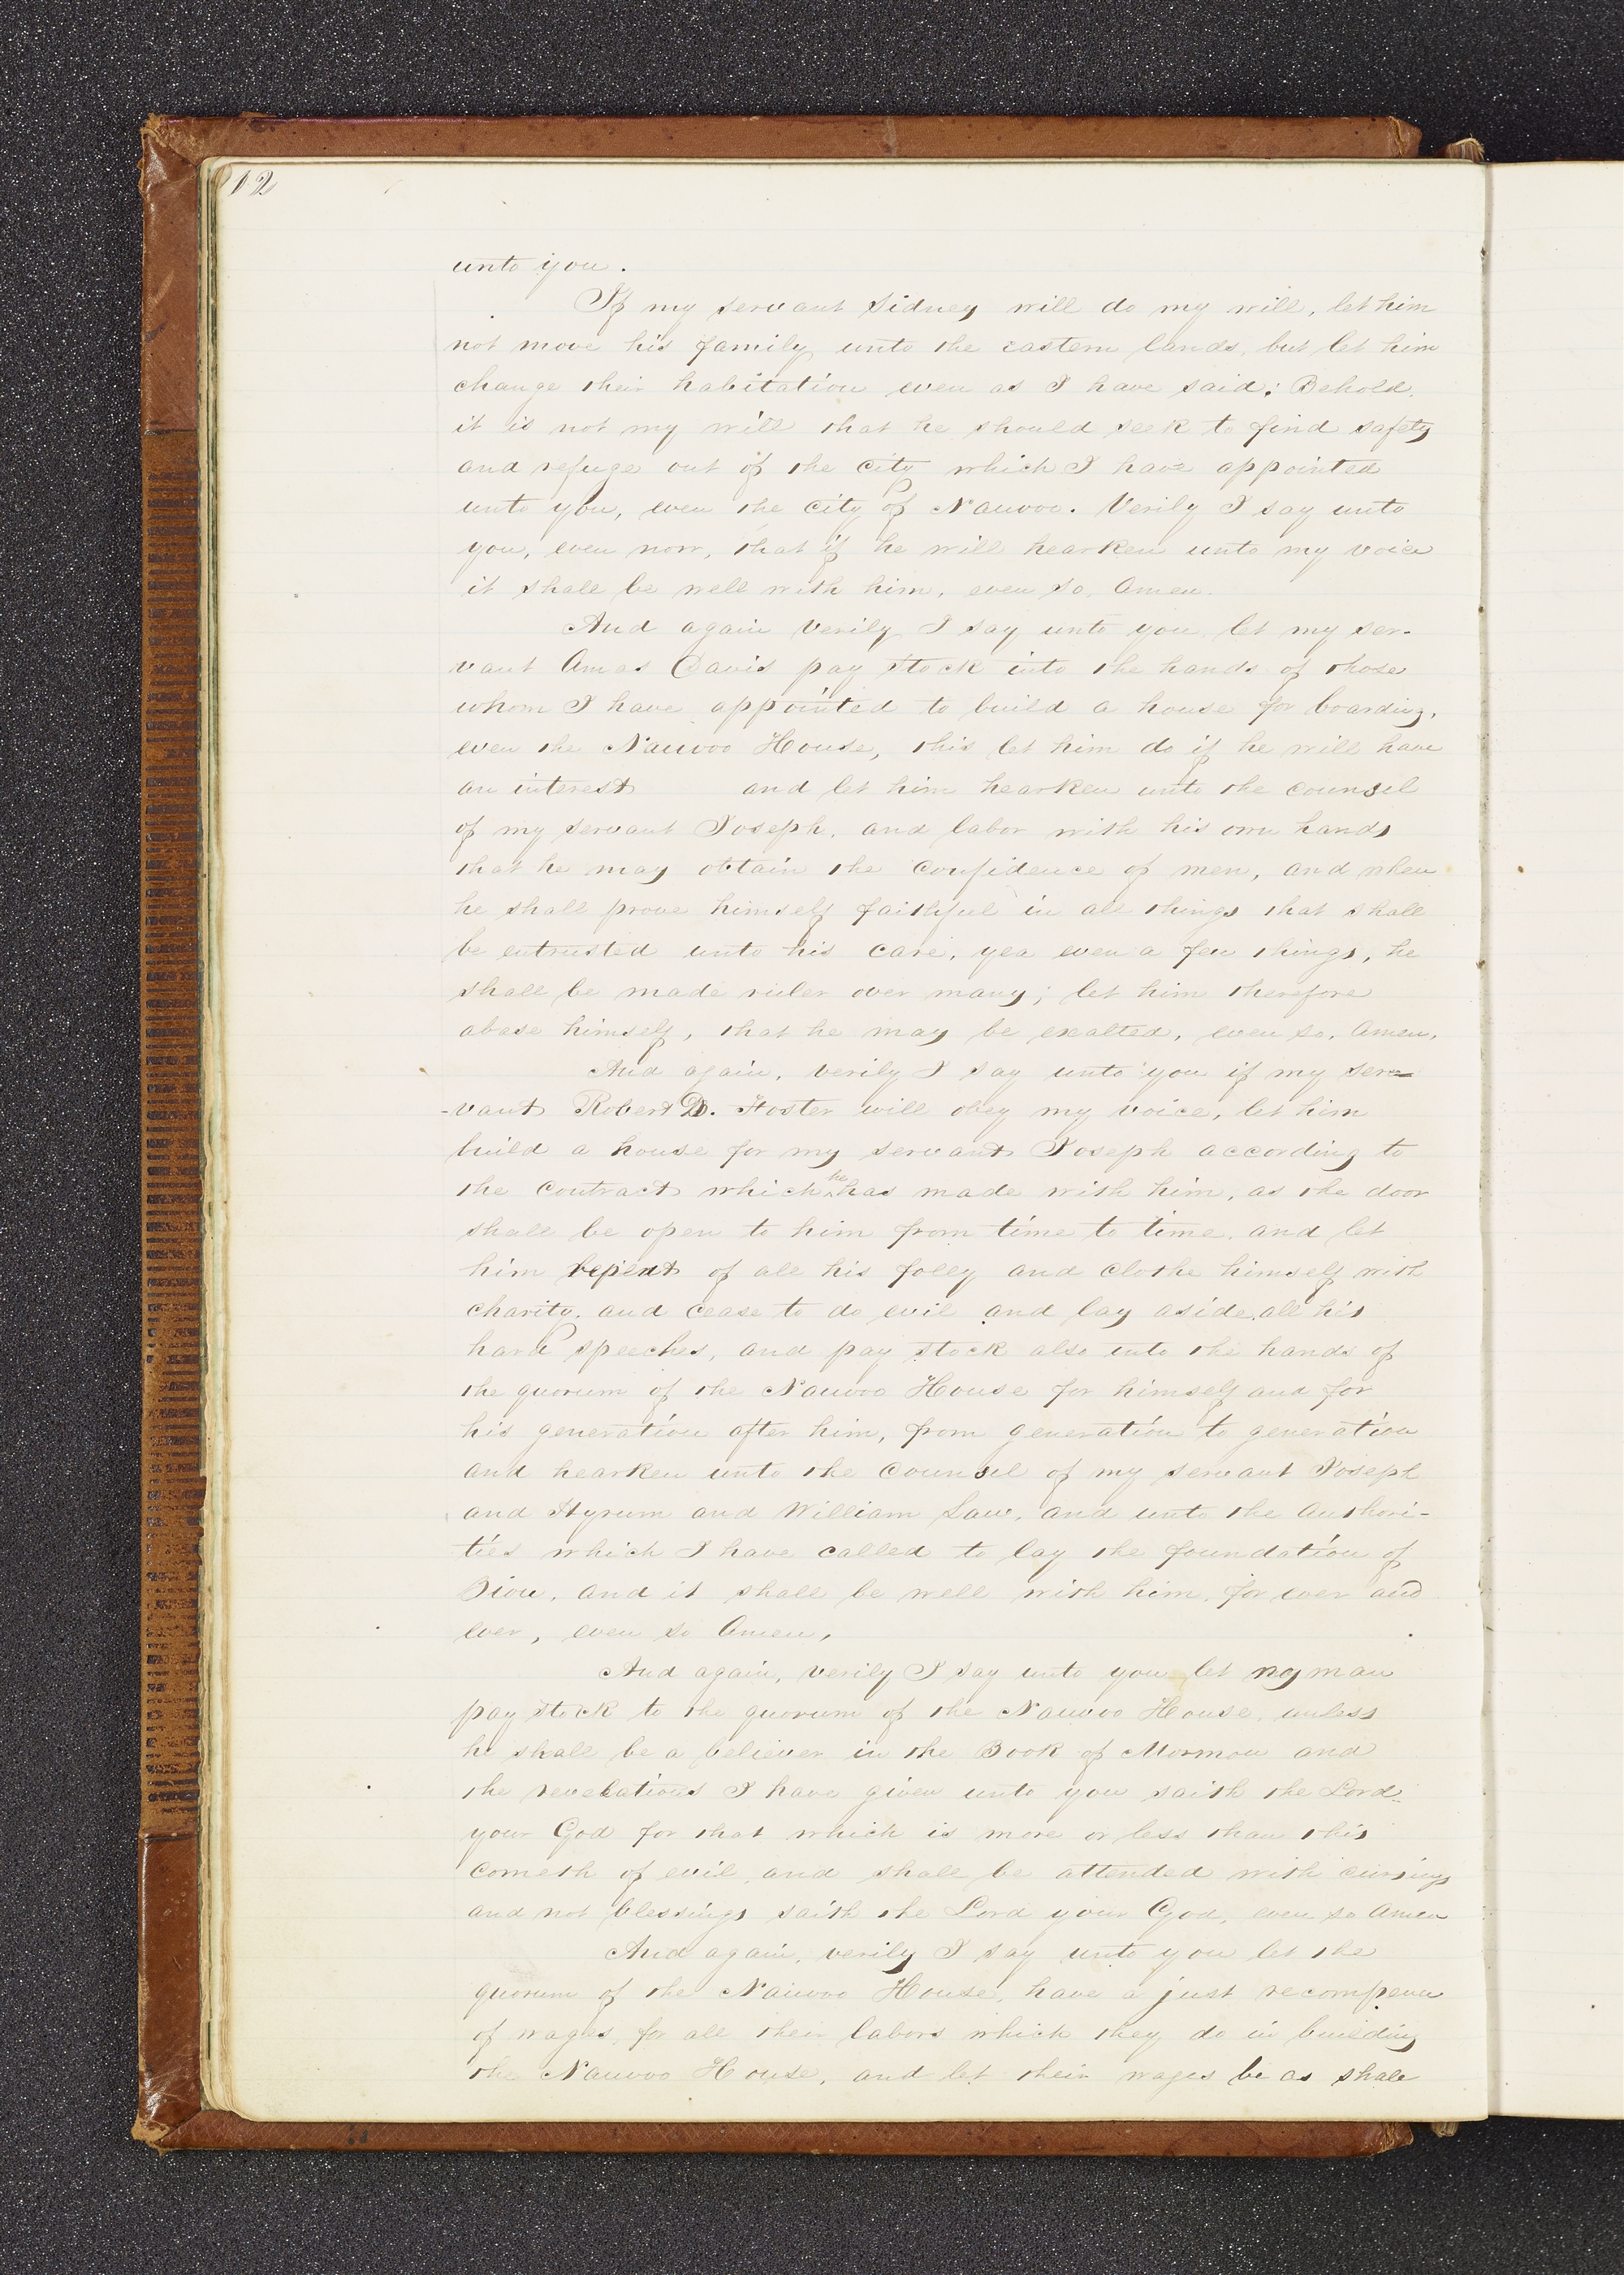 12
unto you.
If my servant Sidney will do my will, let him
not move his family unto the eastern lands, but let him
change their habitation even as I have said: Behold,
it is not my will that he should seek to find safety
and refuge out of the city which I have appointed
unto you, even the city of Nauvoo. Verily I say unto
you, even now, that if he will hearken unto my voice
it shall be well with him, even so, Amen.
And again verily I say unto you let my ser-
vant Amos Davis pay stock into the hands of those
whom I have appointed to build a house for boarding,
even the Nauvoo House, this let him do if he will have
an interest and let him hearken unto the counsel
of my servant Joseph, and labor with his own hands
that he may obtain the confidence of men, and when
he shall prove himself faithful in all things that shall
be entrusted unto his care, yea even a few things, he
shall be made ruler over many; let him therefore
abase himself, that he may be exalted, even so, Amen.
And again, verily I say unto you if my ser=
-vant Robert D. Foster will obey my voice, let him
build a house for my servant Joseph according to
the contract which he has made with him, as the door
shall be open to him from time to time, and let
him repent of all his folly and clothe himself with
charity, and cease to do evil and lay aside all his
hard speeches, and pay stock also into the hands of
the quorum of the Nauvoo House for himself and for
his generation after him, from generation to generation
and hearken unto the counsel of my servant Joseph
and Hyrum and William Law, and unto the authori-
ties which I have called to lay the foundation of
Zion, and it shall be well with him, for ever and
ever, even so Amen,
And again, verily I say unto you let no man
pay stock to the quorum of the Nauvoo House, unless
he shall be a believer in the Book of Mormon and
the revelations I have given unto you saith the Lord
your God for that which is more or less than this
cometh of evil, and shall be attended with cursings
and not blessings saith the Lord your God, even so Amen
And again, verily I say unto you let the
quorum of the Nauvoo House, have a just recompence
of wages, for all their labors which they do in building
the Nauvoo House, and let their wages be as shall